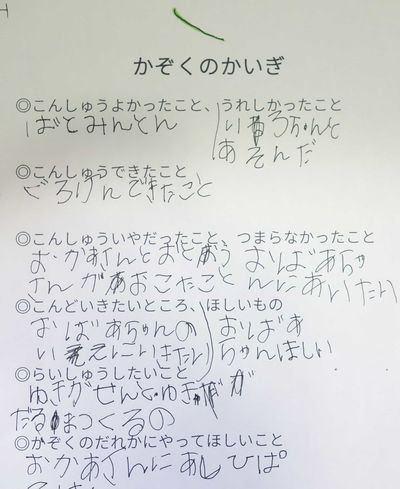 かぞくのかいぎ
◎こんしゅうよかったこと、うれしかったこと
ばとみんとん
いろちゃんと
あそんだ
◎こんしゅうできたこと
ぐろけんできたこと
◎こんしゅういやだったこと、つまらなかったこと
おかあさんとおとおう
さんがおこたこと
おばあちゃ
んにあいたい
◎こんどいきたいところ、ほしいもの
おばあちゃんの
いえにいきたい
おばあ
ちゃんほしい
◎らいしゅうしたいこと
ゆきがせんとゆきが
だるまつくるの
◎かぞくのだれかにやってほしいこと
おかあさんにあしひぱ